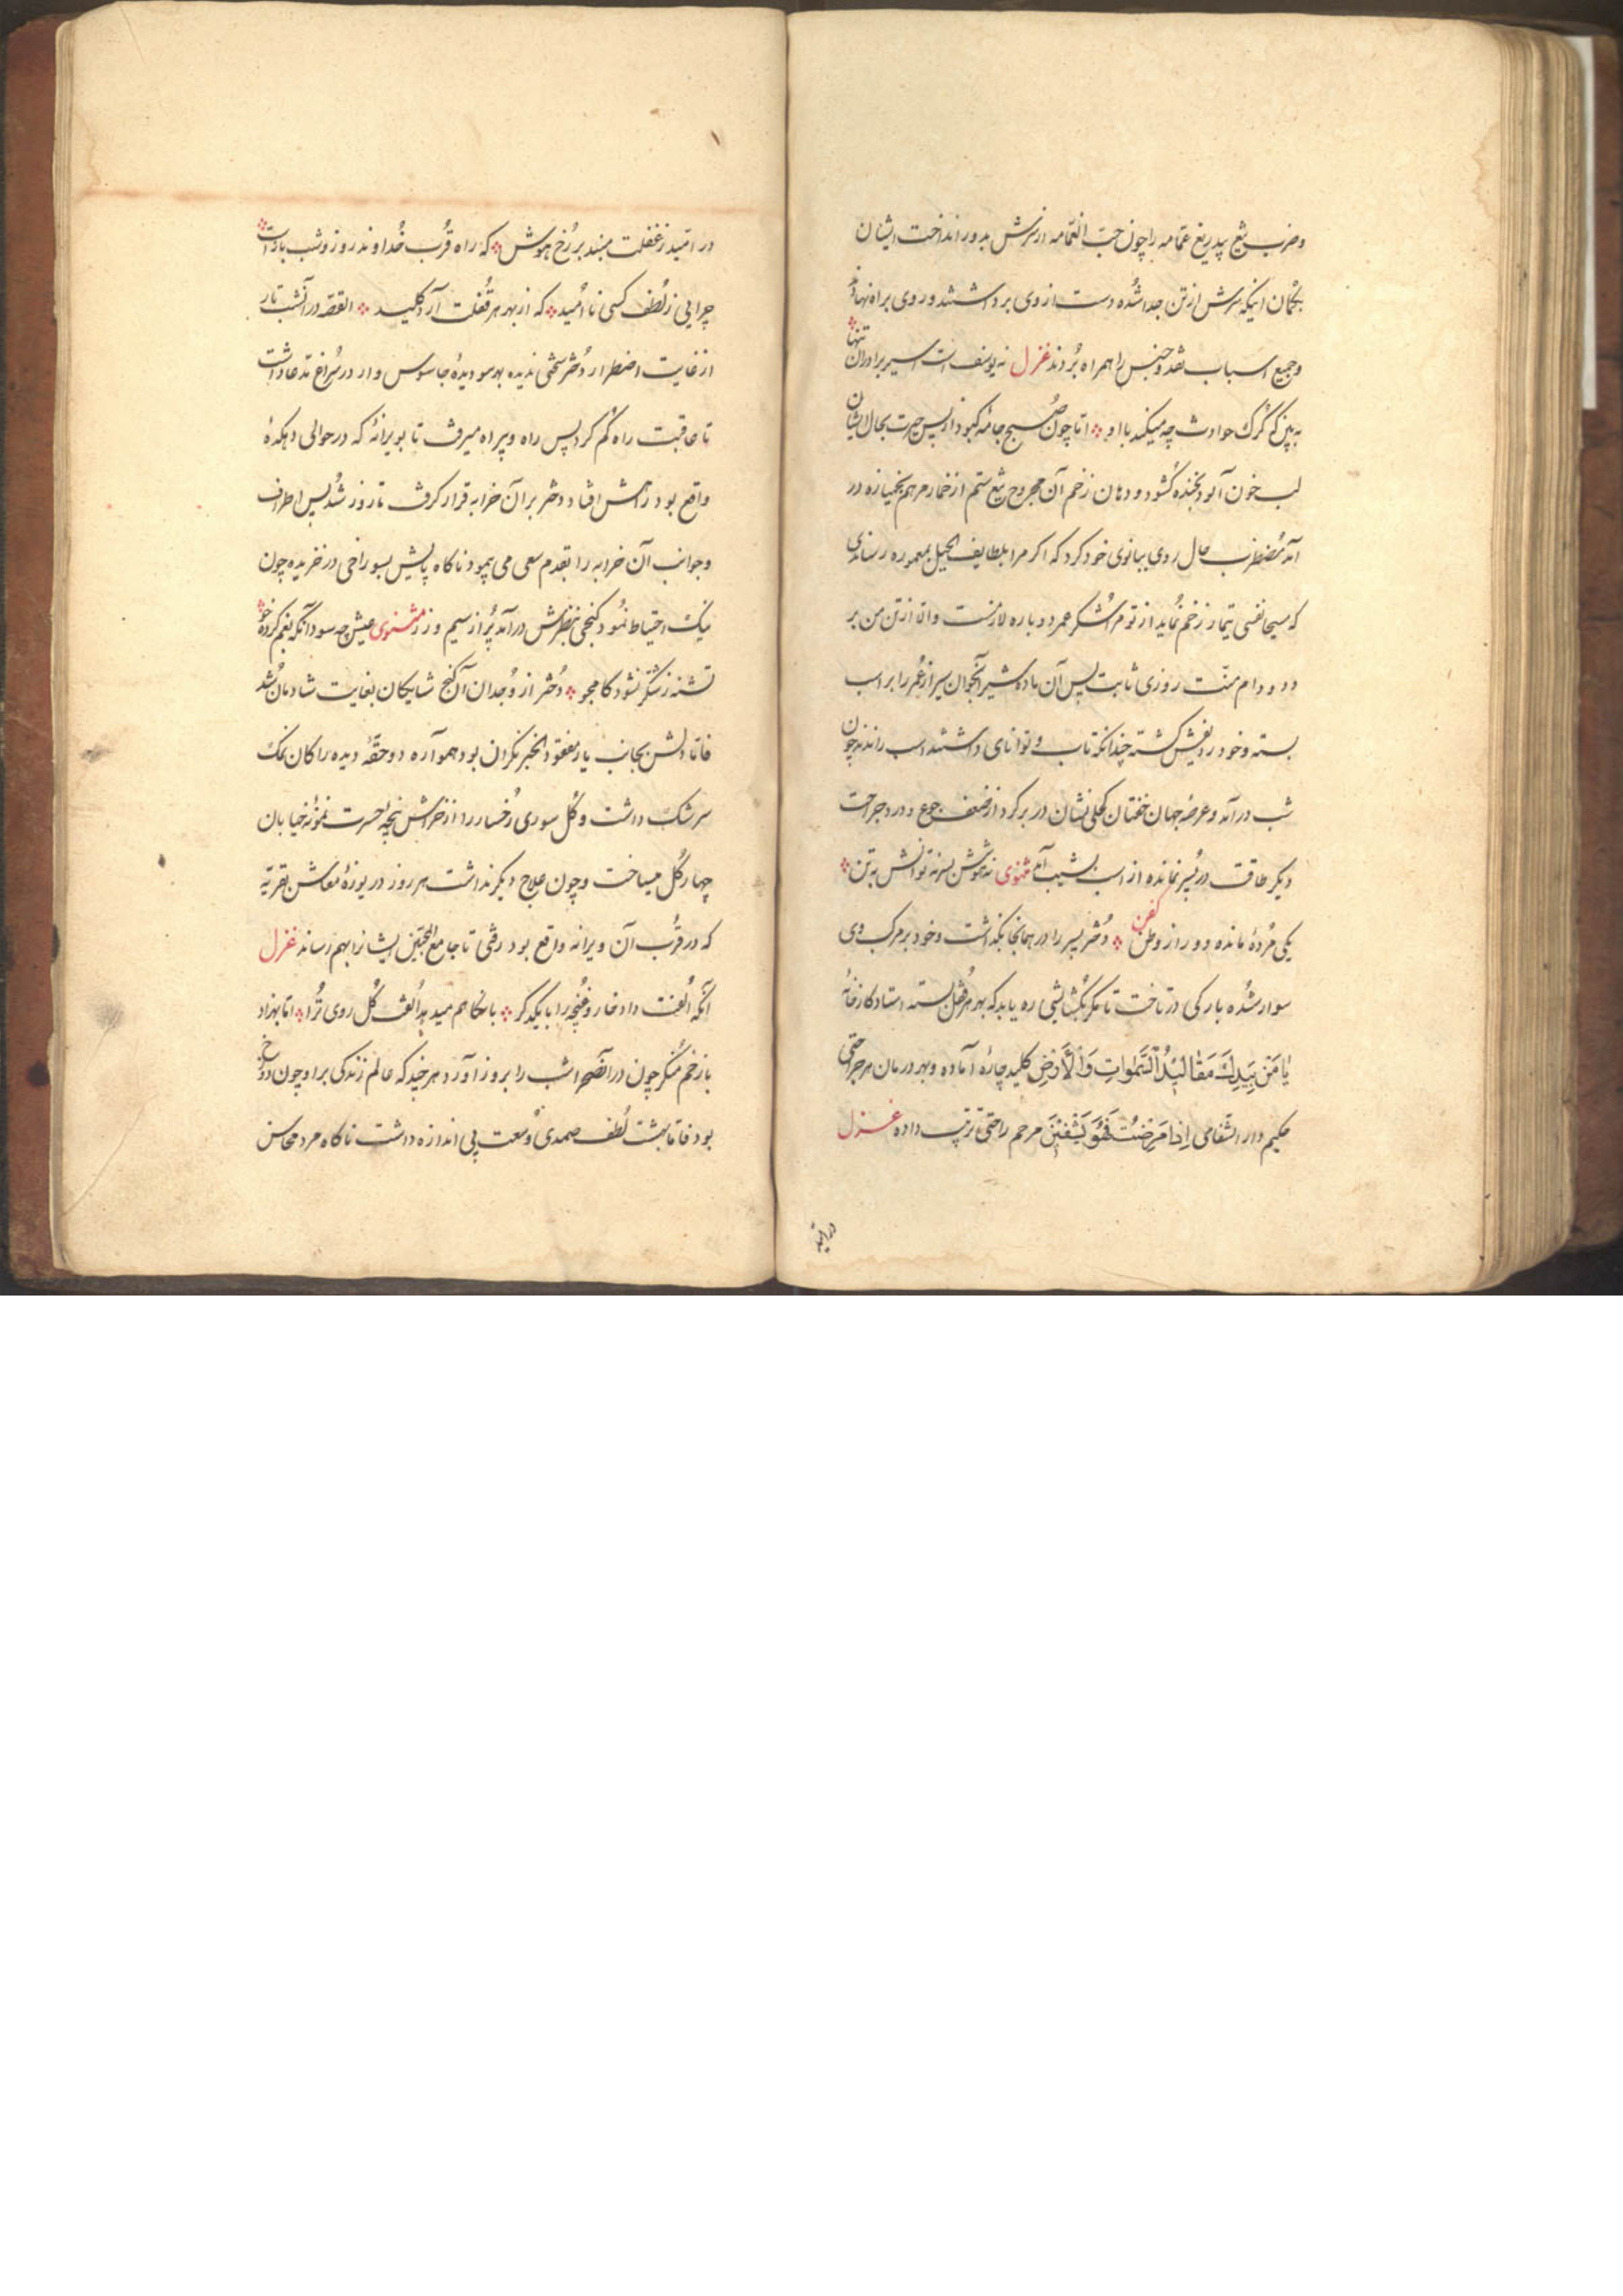 وضرب تیغ بیدریغ عمّامه را چون حبّ الغمّامه از سرش بدور انداخت ایشان
بگمان اینکه سرش از تن جدا شُده دست از وی برداشتند و روی براه نهادند
و جمیع اسباب نقد و جنس را همراه بُردند غزل نه یوسف است اسیر برادران تنها
به بین که گرک حوادث چه میکند با او امّا چون صُبح جامه کبود از پس حیرت بحال ایشان
لب خون آلود بخنده کشود و دهان زخم آن مجروح تیغ ستم از خمار مرهم بخمیازه در
آمد مُضطرب حال روی ببانوی خود کرد که اکر مرا بلطایف الحیل بمعموره رسانیدی
که مسیحا نفسی تیمار زخم نُماید از تو مر اشکر عمر دوباره لازمست والّا از تن من بر
دد و دام منّت روزی ثابت پس آن ماده شیر آنجوان سیر از عُمر را بر اسب
بسته و خود ردیفش کشته چندانکه تاب و توانای داشتند اسب راندند چون
شب درآمد و عرصهٔ جهان خفتان کحلی نشان در بر کرد از ضعف جوع و درد جراحت
دیکر طاقت در پسر نمانده از اسب بشیب آمد مثنوی نه هوشش بسر نه توانش به تن
یکی مُردهٔ مانده دور از وطن کفن دُختر پسر را در همانجا بکذاشت و خود بر مرکب وی
سوار شُده بارکی در تاخت تا مکر بکشایشی ره یابد که بهر هر قُفل بسته استاد کارخانهٔ
یٰا مَن بِیَدِكَ مَقٰالیٖدُ السَّمٰواتِ وَالْاَرْضِ کلید چارهٔ آماده و بهر درمان هر جراحتی
حکیم دار الشّفای اِذٰا مَرِضْتُ فَهُوَ یَشْفیٖنِ مرحم راحتی ترتیب داده غزل
در امّید ز غفلت مبند بر رُخ هوش که راه قُرب خُداوند روز و شب باز است
چرایی ز لُطف کسی نا اُمید که از بهر هر قُفلت آرد کلید القصّه در آنشب تار
از غایت اضطرار دُختر سختی ندیده بهر سو دیدهٔ جاسوس وار در سُراغ مدّعا داشت
تا عاقبت راه کُم کرد پس راه و بیراه میرفت تا بویرانهٔ که در حوالی دهکدهٔ
واقع بود راهش افتاد دختر بر آن خرابه قرار کرفت تا روز شُد پس اطراف
وجوانب آن خرابه را بقدم سعی می پیمود ناکاه پایش بسوراخی در خزیده چون
نیک احتیاط نمُود کنجی بنظرش درآمد پُر از سیم و زر مثنوی عیش چه سود آنکه بغم کرده خو
تشنه ز شکّر نشود کامجو دُختر از وُجدان آن کنج شایکان بغایت شادمان شد
فامّا دلش بجانب یار مفقود الخبر نکران بود هموآره دو حقّهٔ دیده را کان نمک
سرشک داشت و کُل سوری رُخسار را از خراش پنجهٔ حسرت نمونهٔ خیابان
چهار کُل میساخت و چون علاج دیکر نداشت هر روز در یوزهٔ معاش بقریهٔ
که در قُرب آن ویرانه واقع بود رفتی تا جامع المحبّین ایشانرا بهم رساند غزل
آنکه اُلفت داد خار و غُنچه را با یکدکر با نکاهم میدهد اُلفت کُل روی تُرا امّا بهزاد
با زخم مُنکر چون در آنصحرا شب را بروز آورد هر چند که عالم زندکی بر او چون دوزخ
بود فامّا بهشت لُطف صمدی وُسعت بی اندازه داشت ناکاه مرد محاسن
در امّید